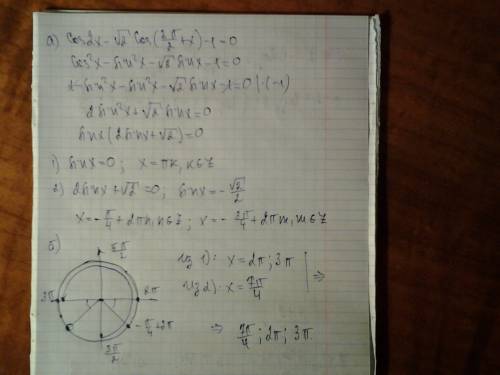 а) cos2x - √2 cos(3π/2 + x) - 1 = 0
cos²x - sin²x - √2 sinx - 1 = 0
1 - sin²x - sin²x - √2 sinx - 1 = 0 | ·(-1)
2sin²x + √2 sinx = 0
sinx(2sinx + √2) = 0
1) sinx = 0 ; x = πk, k∈Z
2) 2sinx + √2 = 0; sinx = -√2/2
x = -π/4 + 2πn, n∈Z ; x = -3π/4 + 2πm, m∈Z
б)
5π/2
3π
2π
-π/4 + 2π
3π/2
Из 1): x = 2π; 3π
Из 2): x = 7π/4
⇒
⇒ 7π/4; 2π; 3π